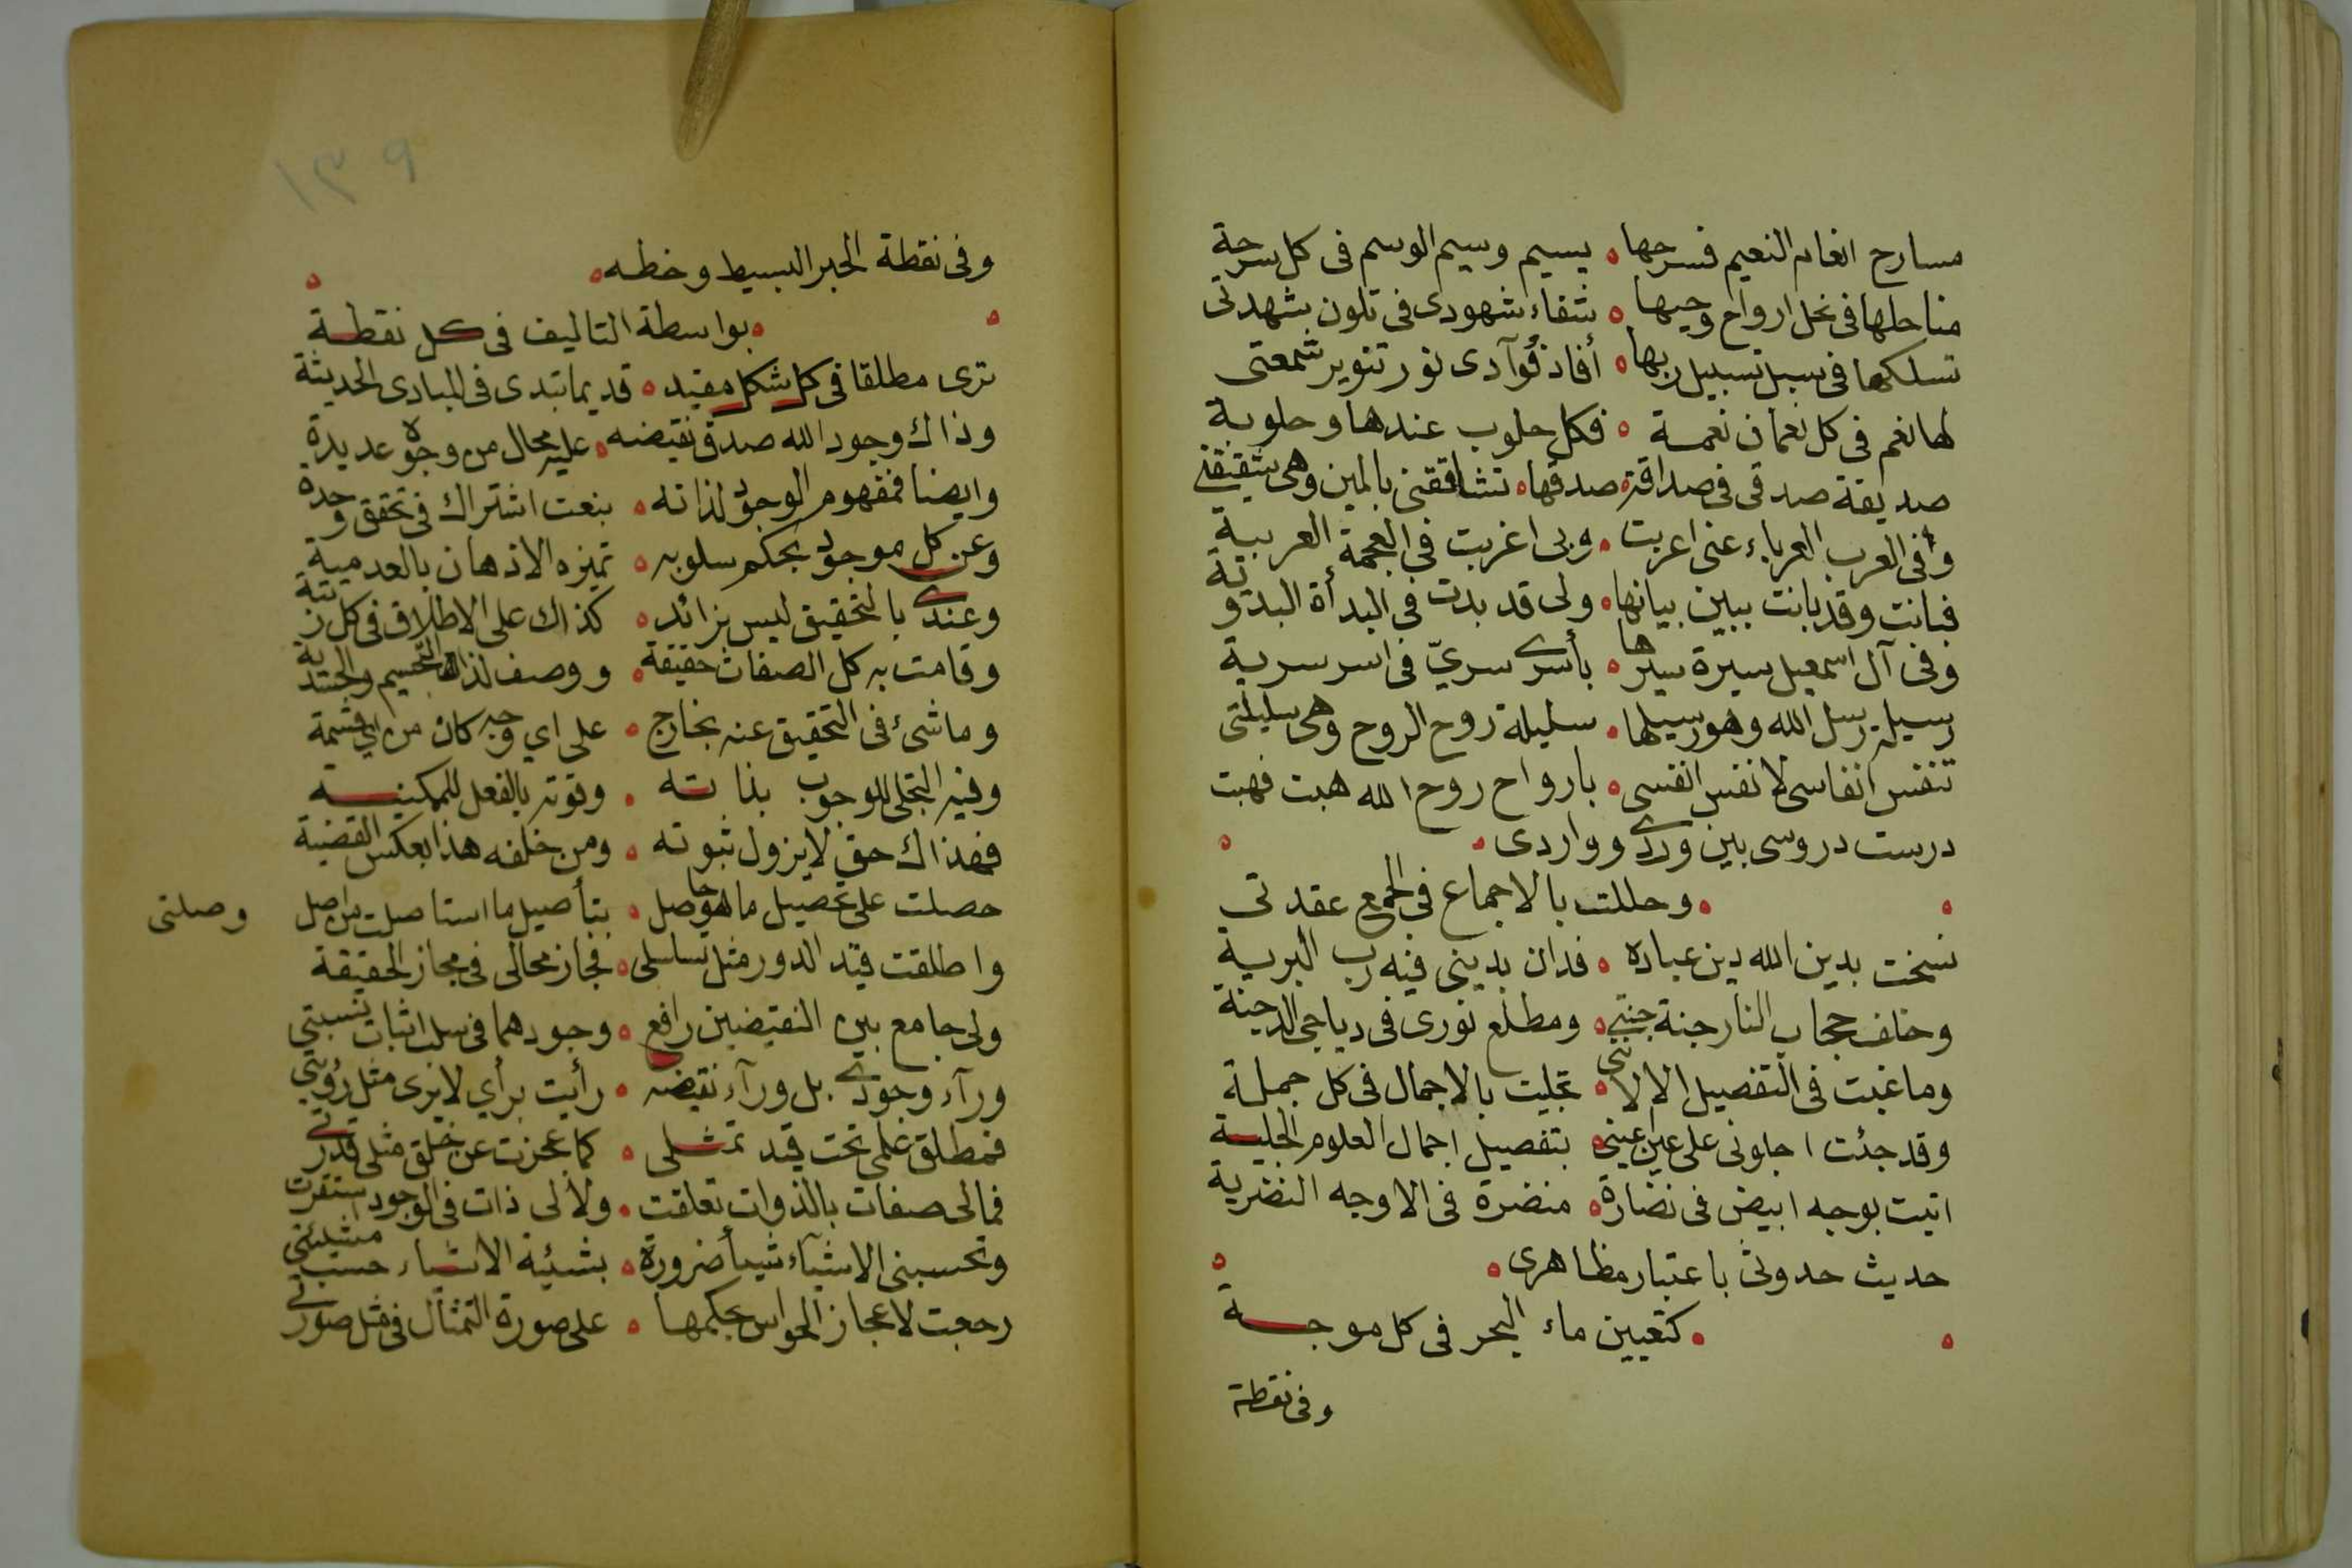 مسارح انغام النعيم فسرحها ٥ يسيم وسيم الوسم فى كل سرحة
مناحلها فى نحل ارواح وحيها ٥ شفاء شهودى فى تلون شهدتى
تسلكها فى سبل تسبيل ربها ٥ أفاد فوآدى نور تنوير شمعتى
لها نغم فى كل نعمان نغمة ٥ فكل حلوب عندها وحلوبة
صديقة صدقى فى صداقة صدقها ٥ تشاققنى بالمين وهى شقيقتى
وفى العرب العرباء عنى اعربت ٥ وبى اغربت فى العجمة العربية
فبانت وقد بانت ببين بيانها ٥ ولى قد بدت فى البدأة البدوية
وفى آل اسمعيل سيرة سيرها ٥ بأسرى سريّ فى اسر سرية
رسيلة رسل الله وهو رسيلها ٥ سليلة روح الروح وهى سليلتى
تنفس انفاسى لا نفس انفسى ٥ بارواح روح الله هبت فهبت
درست دروسى بين وردى وواردى ٥
٥ وحللت بالاجماع فى الجمع عقدتى
نسخت بدين الله دين عباده ٥ فدان بدينى فيه رب البرية
وخلف حجاب النار جنة جنتى ٥ ومطلع نورى فى دياجى الدجنة
وما غبت فى التفصيل الا لاننى ٥ تجليت بالاجمال فى كل جملة
وقد جئت اجلونى على عين عينى ٥ بتفصيل اجمال العلوم الجلية
اتيت بوجه ابيض فى نضارة ٥ منضرة فى الاوجه النضرية
حديث حدوثى باعتبار مظاهرى ٥
٥ كتعيين ماء البحر فى كل موجة
وفى نقطة
١٣٩
وفى نقطة الحبر البسيط وخطه ٥
٥ بواسطة التاليف فى كل نقطة
ترى مطلقا فى كل شكل مقيد ٥ قديما تبدى فى المبادى الحديثة
وذاك وجود الله صدق نقيضه ٥ عليه محال من وجوه عديدة
وايضا فمفهوم الوجود لذاته ٥ بنعت اشتراك فى تحقق وحدة
وعن كل موجود بحكم سلوبه ٥ تميزه الاذهان بالعدمية
وعندى بالتحقيق ليس بزائد ٥ كذاك على الاطلاق فى كل
وقامت به كل الصفات حقيقة ٥ ووصف لذات التجسيم
وما شئ فى التحقيق عنه بخارج ٥ على اي وجه كان من اي قسمة
وفيه التجلى للوجوب بذاته ٥ وقوته بالفعل للممكنية
فهذاك حق لا يزول ثبوته ٥ ومن خلفه هذا بعكس القضية
حصلت على تحصيل ما هو حاصل ٥ بتأصيل ما استاصلت من اصل
وصلتى
واطلقت قيد الدور مثل تسلسلى ٥ فجاز محالى فى مجاز الحقيقة
ولى جامع بين النقيضين رافع ٥ وجودهما فى سلب اثبات نسبتى
ورآء وجودى بل ورآء نقيضه ٥ رأيت برأي لا يرى مثل رؤيتى
فمطلق علمى تحت قيد تمثلى ٥ كما عجزت عن خلق مثلى قدرتى
فما لى صفات بالذوات تعلقت ٥ ولا لى ذات فى الوجود استقرت
وتحسبنى الاشيآء شيأ ضرورة ٥ بشيئة الاشياء حسب مشيئتى
رجعت لاعجاز الحواس بحكمها ٥ على صورة التمثال فى مثل صورتى